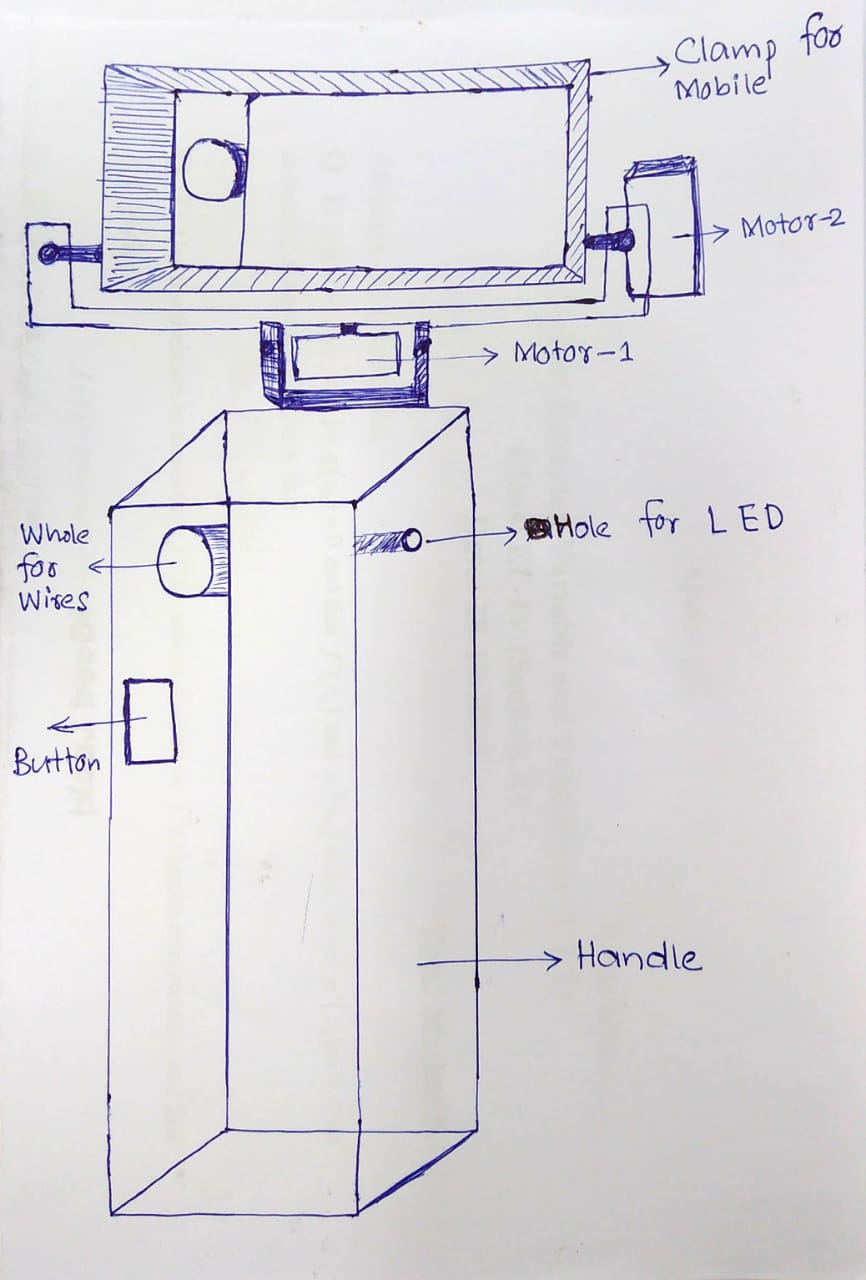 Clamp for
Mobile
Motor-2
Motor-1
Whole
for
Wires
Hole for LED
Button
Handle